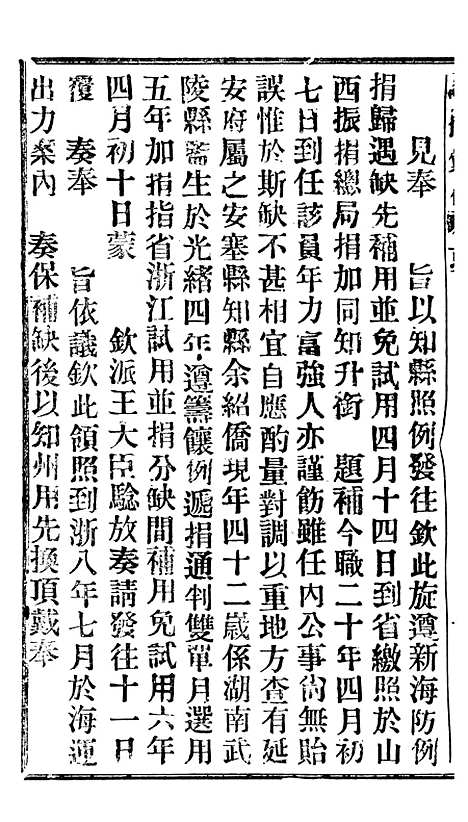 見奉　旨以知縣照例發往欽此旋遵新海防例
捐歸遇缺先補用並免試用四月十四日到省繳照於山
西振捐總局捐加同知升銜　題補今職二十年四月初
七日到任該員年力富強人亦謹飭雖任內公事尚無貽
誤惟於斯缺不甚相宜自應酌量對調以重地方查有延
安府屬之安塞縣知縣余紹僑現年四十二歲係湖南武
陵縣監生於光緒四年遵籌饟例遞捐通判雙單月選用
五年加捐指省浙江試用並捐分缺間補用免試用六年
四月初十日蒙　欽派王大臣驗放奏請發往十一日
覆　奏奉　旨依議欽此領照到浙八年七月於海運
出力案內　奏保補缺後以知州用先換頂戴奉